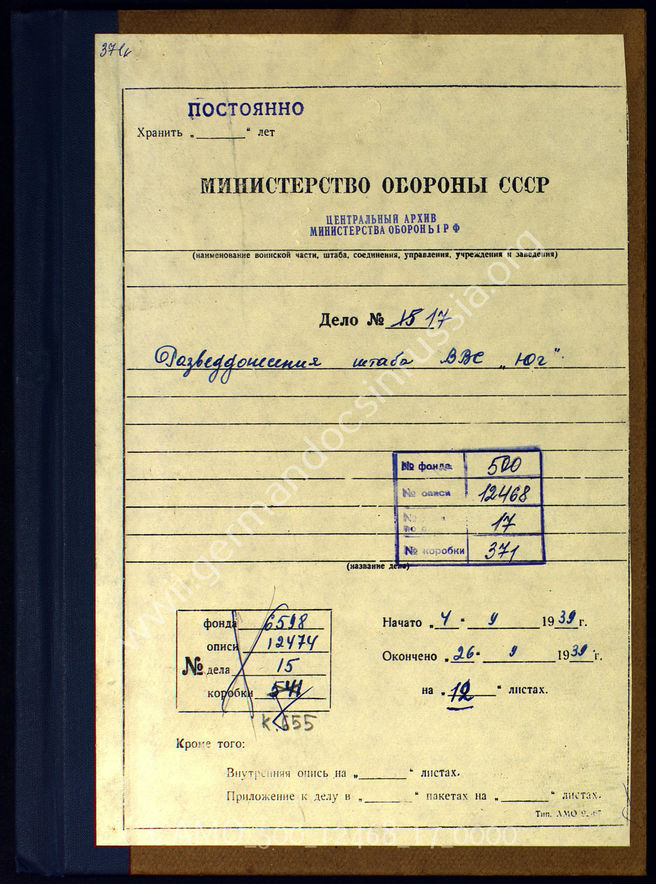 371к
ПОСТОЯННО
Хранить „______“ лет
МИНИСТЕРСТВО ОБОРОНЫ СССР
ЦЕНТРАЛЬНЫЙ АРХИВ
МИНИСТЕРСТВА ОБОРОНЫ РФ
(наименование воинской части, штаба, соединения, управления, учреждения и заведения)
Дело № 15 17
Разведдонесения штаба ВВС „Юг“.
№ фонда 500
№ описи 12468
№ 17
№ коробки 371
(название дела)
фонда 6598
описи 12474
№ дела 15
коробки 541
К.655
Начато „4“ 9 1939 г.
Окончено „26“ 9 1939 г.
на „12“ листах.
Кроме того:
Внутренняя опись на „______“ листах.
Приложение к делу в „______“ пакетах на „______“ листах.
Тип. АМО
www.germandocsinrussia.org